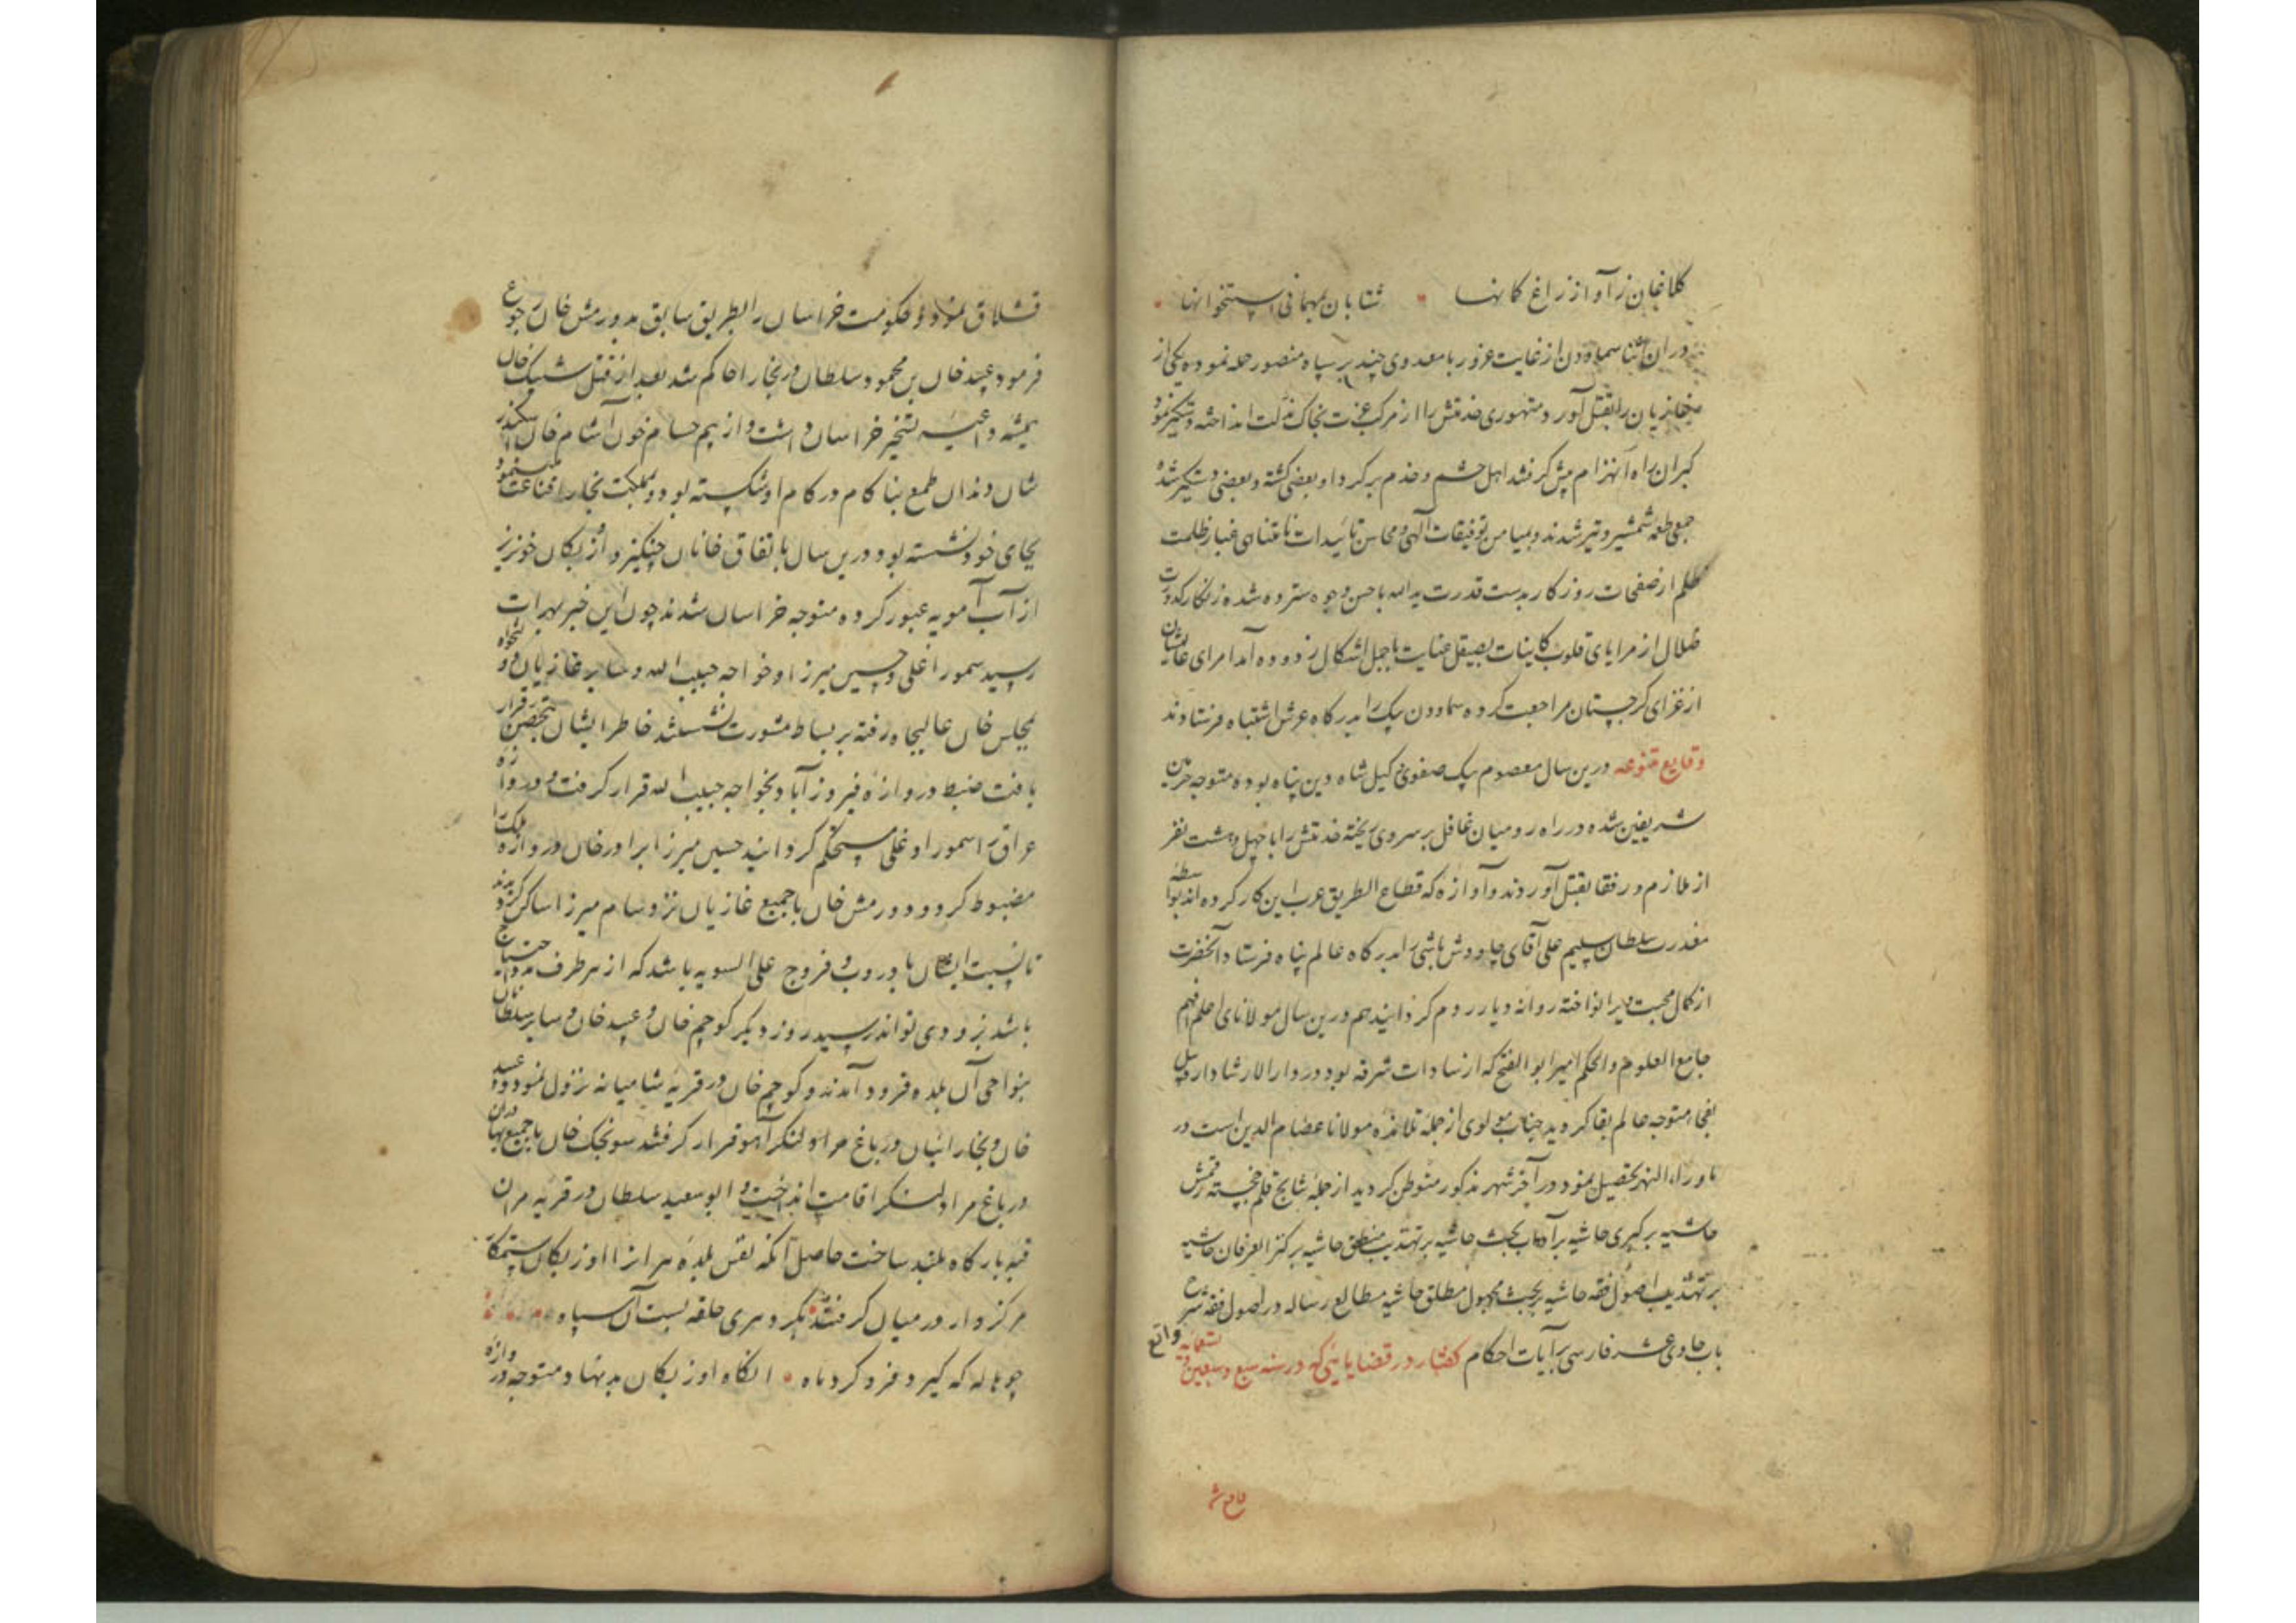 کلاغان ز آواز زاغ کمانها • شتابان بمهمانی استخوانها •
در ان اثنا سماودن از غایت غرور با معدودی چند بر سپاه منصور حمله نموده یکی از
غازیان را بقتل آورد متهوری خدمتش را از مرکب عزت بخاک مذلت انداخته دستگیر نمود
کبران راه انهزام پیش گرفتند اهل حشم و خدم بر گرد او بعضی کشته و بعضی دستگیر شد
جمعی طعمه شمشیر و تیر شدند و بمیامن توفیقات آلهی و محاسن تائیدات نامتناهی غبار ظلمت
ظلم از صفحات روزکار بدست قدرت ید الله باحسن وجوه سترده شده زنکار کدورت
ضلال از مرایای قلوب کاینات بصیقل عنایت باجمل اشکال زدوده آمد امرای عالیشان
از غزای کرجستان مراجعت کرده سماودن بیک را بدرکاه عرش اشتباه فرستادند
وقایع متنوعه درین سال معصوم بیک صفوی که وکیل شاه دین پناه بوده متوجه حرمین
شریفین شده در راه رومیان غافل بر سر وی ریخته خدمتش را با چهل و هشت نفر
از ملازم و رفقا بقتل آوردند و آوازه که قطاع الطریق عرب این کار کرده اند بواسطه
معذرت سلطان سلیم علی آقای چاووش باشی را بدرکاه عالم پناه فرستاد آنحضرت
از کمال محبت ویرا نواخته روانه دیار روم کردانید هم درین سال مولانای اعلم افهم
جامع العلوم و الحکم امیر ابو الفتح که از سادات شرفه بود در دار الارشاد اردبیل
بفجاء متوجه عالم بقا کردید جناب مولوی از جمله تلامذه مولانا عصام الدین است در
ماوراء النهر تحصیل نمود و در آخر شهر مذکور متوطن کردید از جمله نتایج قلم خجسته رقمش
حاشیه بر کبری حاشیه بر آداب بحث حاشیه بر تهذیب منطق حاشیه بر کنز العرفان حاشیه
بر تهذیب اصول فقه حاشیه بر بحث مجهول مطلق حاشیه مطالع رساله در اصول فقه شرح
باب حادی عشر فارسی بر آیات احکام کفتار در قضایایی که در سنه سبع و سبعین و تسعمایه واقع
قشلاق نمود و حکومت خراسان را بطریق سابق بدورمش خان رجوع
فرمود عبید خان بن محمود سلطان در بخارا حاکم شد بعد از قتل شیبک خان
همیشه داعیه تسخیر خراسان داشت و از بیم حسام خون آشام خان اسکندر
شان دندان طمع بناکام در کام او شکسته بود و بمملکت بخارا قناعت نموده
بجای خود نشسته بود درین سال باتفاق خانان چنکیز و اوزبکان خونریز
از آب آمویه عبور کرده متوجه خراسان شدند چون این خبر بهرات
رسید سمور اغلی و حسین میرزا و خواجه حبیب الله و سایر غازیان دولتخواه
بمجلس خان عالیجاه رفته بر بساط مشورت نشستند خاطر ایشان بتحصن قرار
یافت ضبط دروازه فیروزآباد بخواجه حبیب الله قرار کرفت و دروازه
عراق را سمور اوغلی مستحکم کردانید حسین میرزا برادر خان دروازه ملک را
مضبوط کرد و دورمش خان با جمیع غازیان نزد سام میرزا ساکن کردیدند
تا نسبت ایشان با دروب و فروج علی السویه باشد که از هر طرف مدد احتیاج
باشد بزودی تواند رسید روز دیکر کوچم خان و عبید خان و سایر سلطانان
بنواحی آن بلده فرود آمدند و کوچم خان در قریه شامیانه نزول نمود و عبید
خان و بخارائیان در باغ مراد لنکر آهو قرار کرفتند سونجک خان با جمیع بهادران
در باغ مراد لنکر اقامت انداخت و ابو سعید سلطان در قریه مرن
قبه بارکاه بلند ساخت حاصل آنکه نفس بلده هراة را اوزبکان ستمکار
مرکزوار در میان کرفتند • بکرد هری حلقه بست آن سپاه
چو هاله که کیرد فرو کرد ماه • انکاه اوزبکان بد نهاد متوجه دروازه